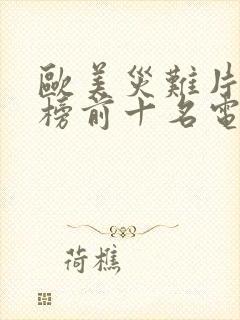 歐美災難片
榜前十名電
荷樵